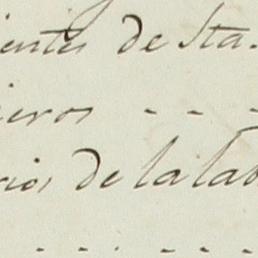 ientes de Sta.
ieros - - - -
rios de la lab
- - - - - -